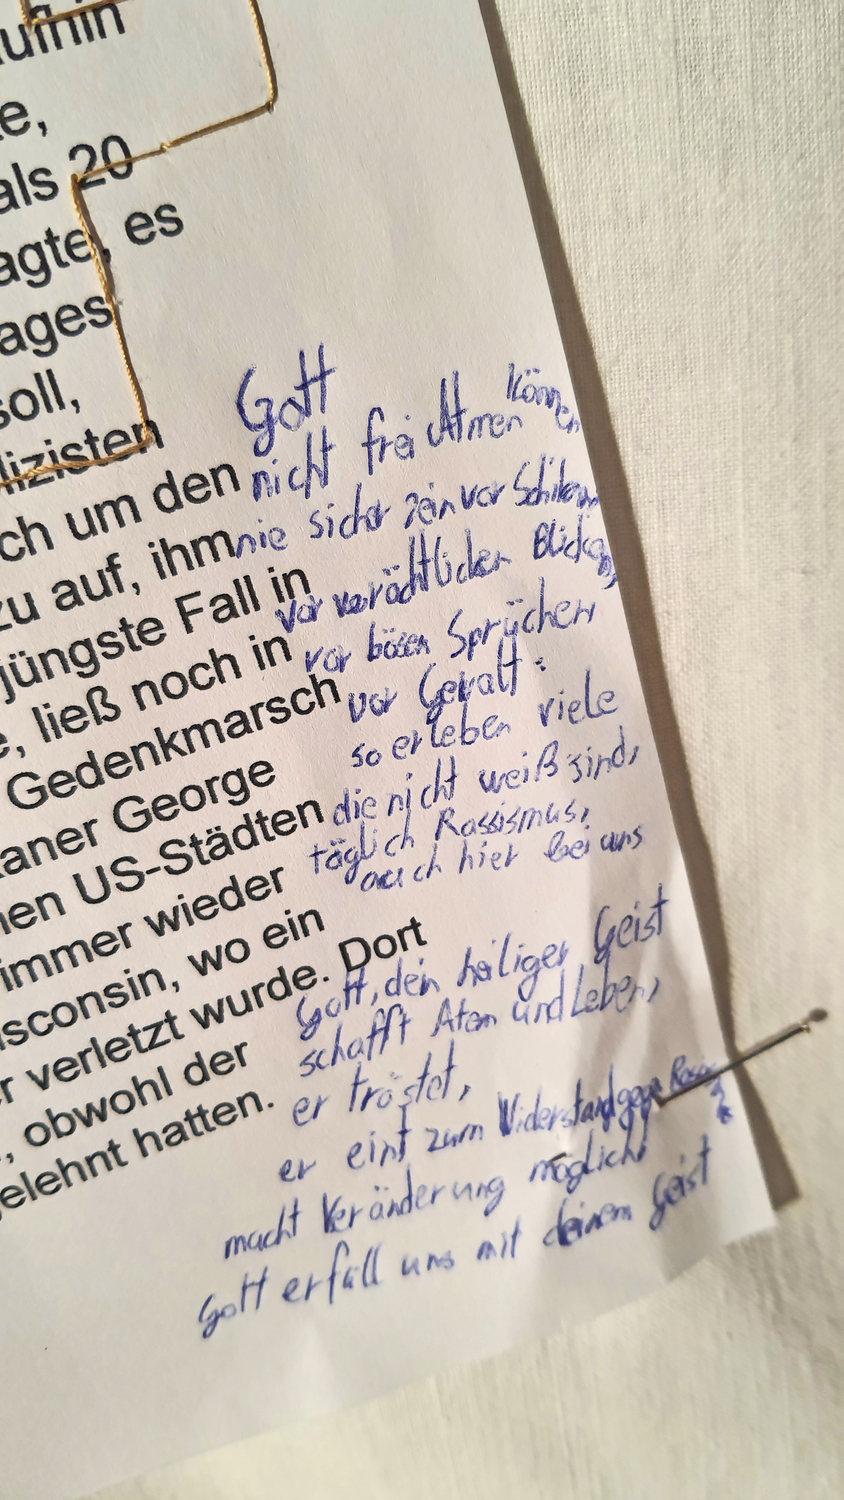 aufhin
e,
als 20
agte, es
ages
soll,
lizisten
ch um den
zu auf, ihm
jüngste Fall in
e, ließ noch in
Gedenkmarsch
kaner George
nen US-Städten
immer wieder
isconsin, wo ein
r verletzt wurde. Dort
, obwohl der
gelehnt hatten.
Gott
nicht frei Atmen können
nie sicher sein vor
vor verächtlichen Blicken,
vor bösen Sprüchen,
vor Gewalt:
so erleben viele
die nicht weiß sind,
täglich Rassismus,
auch hier bei uns
Gott, dein heiliger Geist
schafft Atem und Leben,
er tröstet,
er eint zum Widerstand gegen
macht Veränderung möglich!
Gott erfüll uns mit deinem Geist